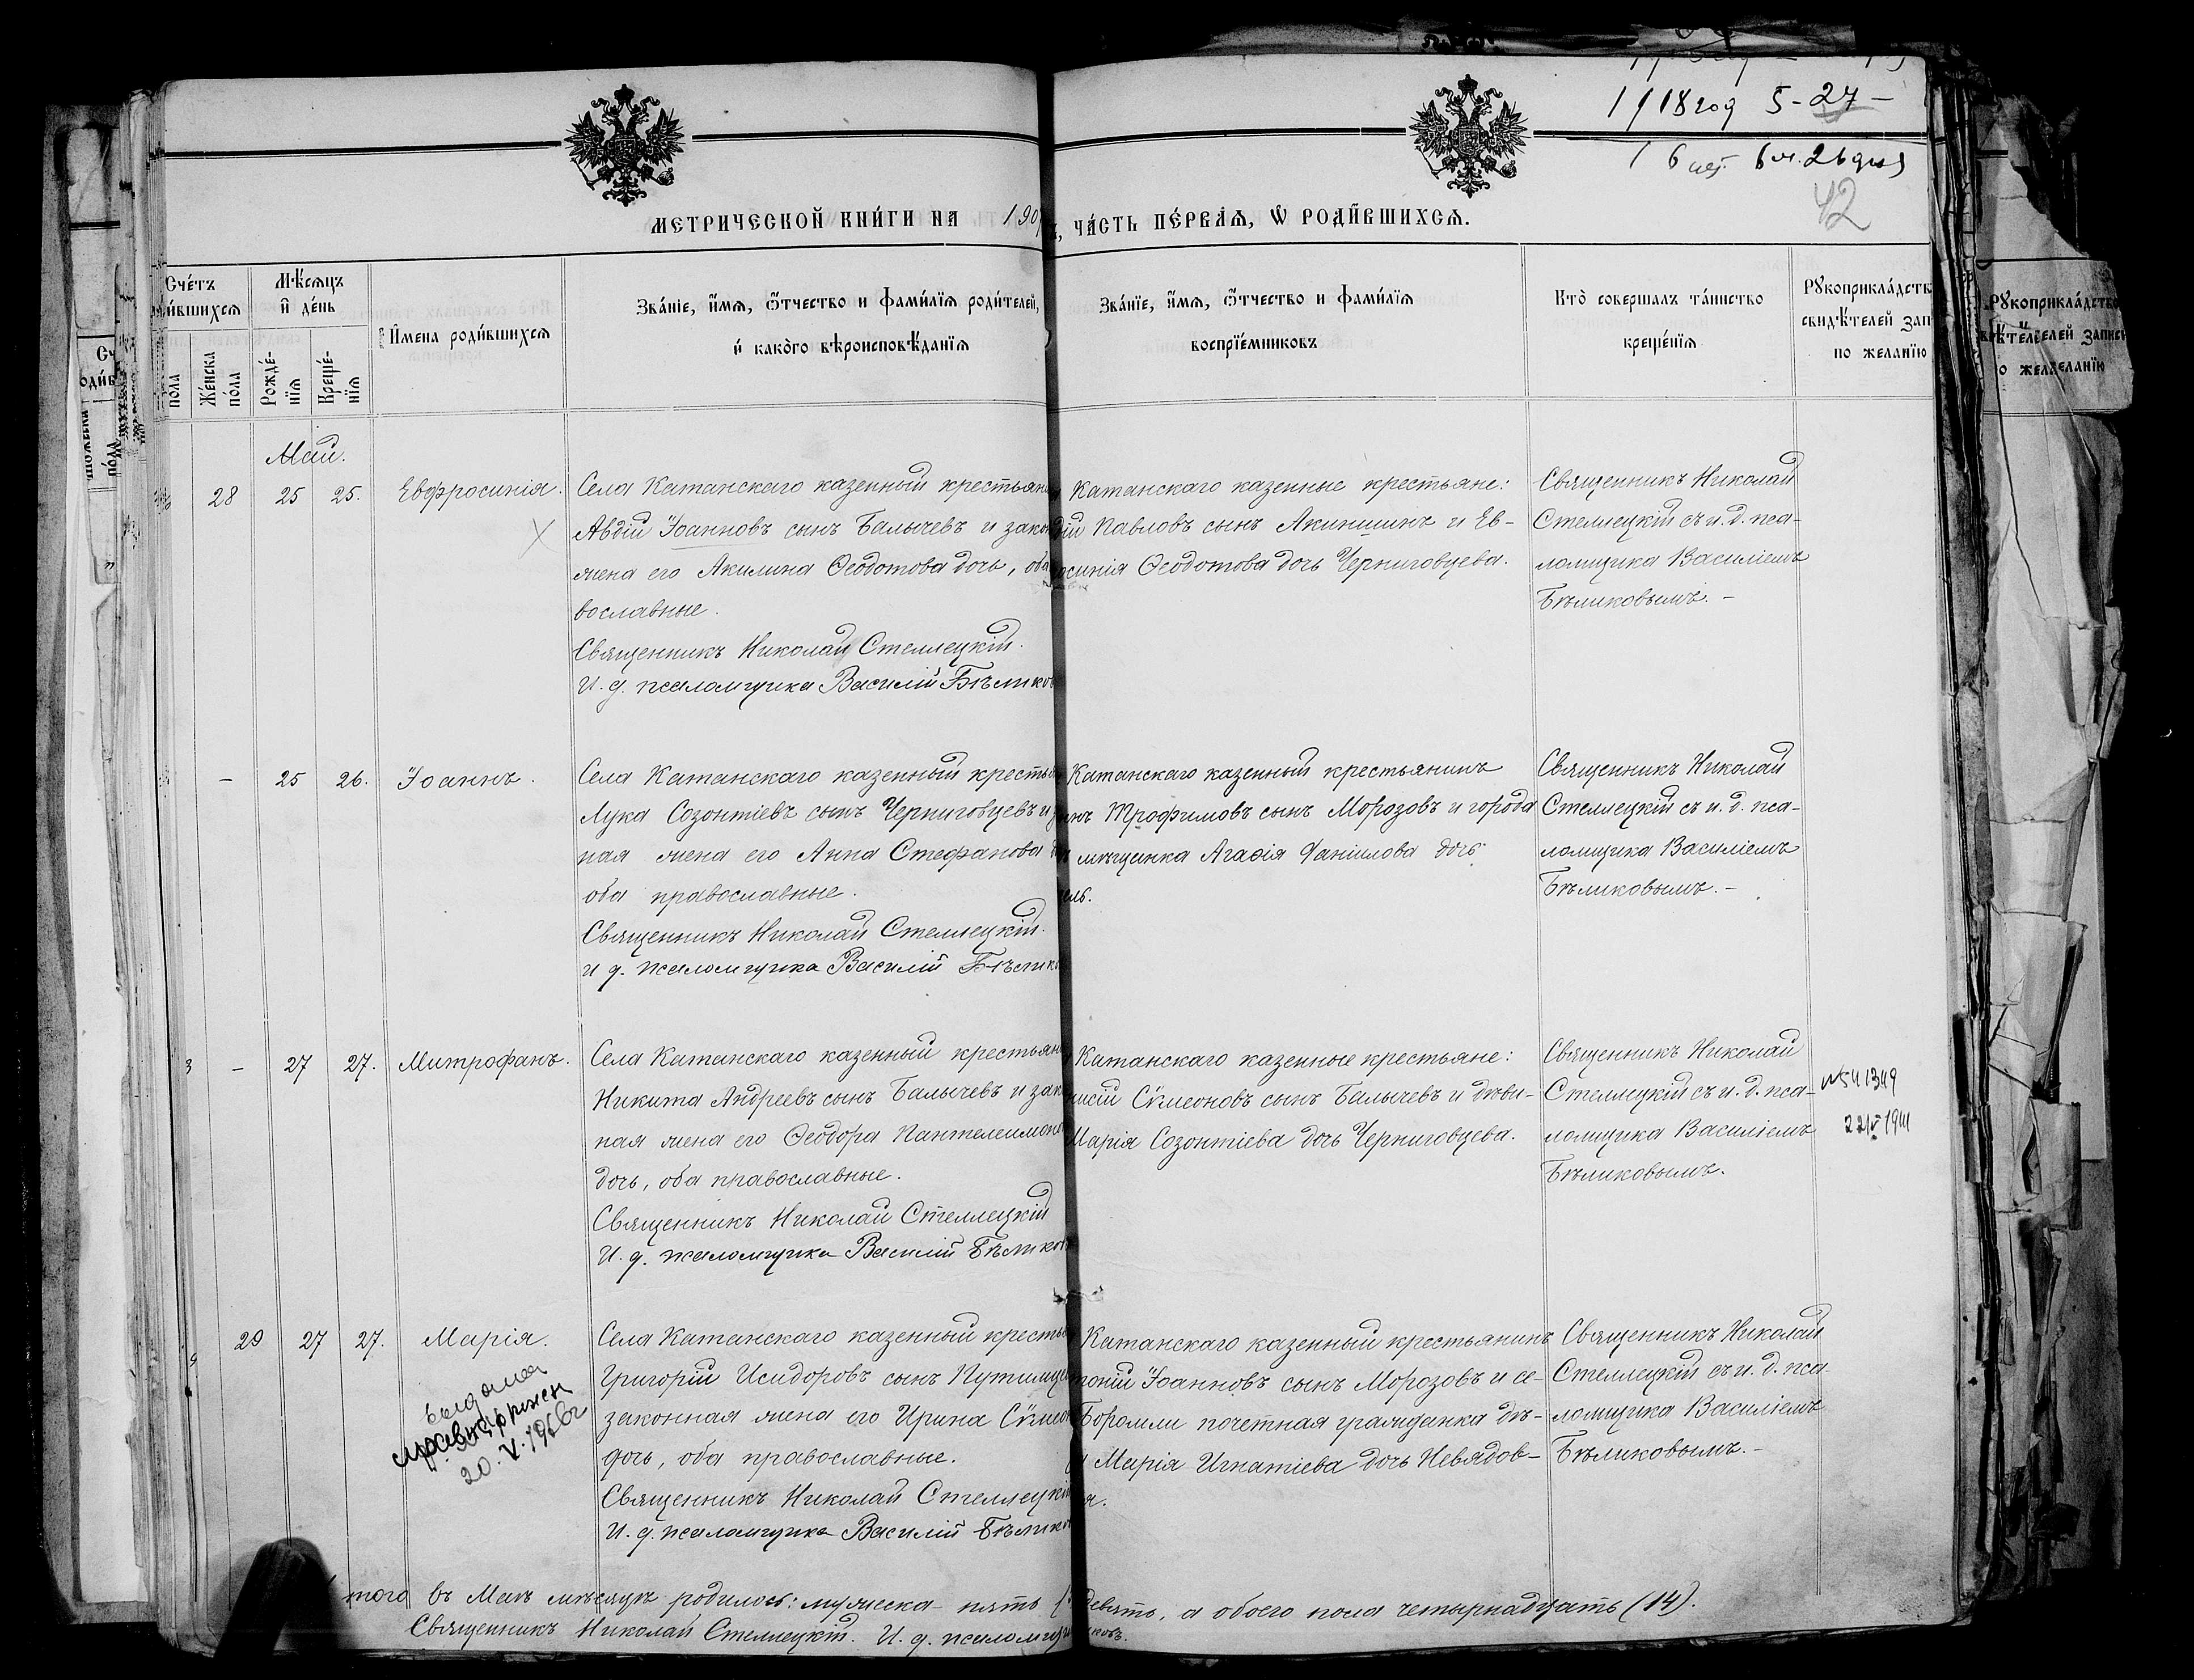 1918 год 5-27-
6 м. 26 дня
42
МЕТРИЧЕСКОЙ КНИГИ НА 190
ЧАСТЬ ПЕРВАЯ, Ѡ РОДИВШИХСЯ.
Счетъ
Мѣсяцъ
и день
Женска
пола
Рожде-
нія
Креще-
нія
Имена родившихся
Званіе, имя, отчество и фамилія родителей,
и какого вѣроисповѣданія
Званіе, имя, отчество и фамилія
воспріемниковъ
Кто совершалъ таинство
крещенія
по желанію
Май.
28 25 25. Евфросинія.
Села Катанскаго казенный
Авдій Іоанновъ сынъ Балычевъ и
жена его Акилина Ѳеодотова дочь,
вославные.
Священникъ Николай Стеллецкій.
И. д. псаломщика Василій
Катанскаго казенные крестьяне:
Павловъ сынъ Акиншинъ и Ев-
Ѳеодотова дочь Черниговцева.
Священникъ Николай
Стеллецкій съ и. д. пса-
ломщика Василіемъ
Бѣликовымъ. –
– 25 26. Іоаннъ.
Села Катанскаго казенный
Лука Созонтіевъ сынъ Черниговцевъ и
ная жена его Анна Стефанова
оба православные.
Священникъ Николай Стеллецкій.
и д. псаломщика Василій
Катанскаго казенный крестьянинъ
Трофимовъ сынъ Морозовъ и города
мѣщанка Агаѳія Даніилова дочь
Священникъ Николай
Стеллецкій съ и. д. пса-
ломщика Василіемъ
Бѣликовымъ. –
– 27 27. Митрофанъ.
Села Катанскаго казенный
Никита Андреевъ сынъ Балычевъ и
ная жена его Ѳеодора
дочь, оба православные.
Священникъ Николай Стеллецкій
И. д. псаломщика Василій
Катанскаго казенные крестьяне:
Сѵмеоновъ сынъ Балычевъ и дѣви-
Марія Созонтіева дочь Черниговцева.
Священникъ Николай
Стеллецкій съ и. д. пса-
ломщика Василіемъ
Бѣликовымъ.
29 27 27. Марія.
20.V.196
Села Катанскаго казенный
Григорій Исидоровъ сынъ
законная жена его Ирина
дочь, оба православные.
Священникъ Николай
И. д. псаломщика Василій
Катанскаго казенный крестьянинъ
Іоанновъ сынъ Морозовъ и се-
Боромли почетная гражданка дѣ-
Марія Игнатіева дочь Невядов-
Священникъ Николай
Стеллецкій съ и. д. пса-
ломщика Василіемъ
Бѣликовымъ. –
въ Маѣ мѣсяцѣ родилось: мужеска – пять
девять, а обоего пола четырнадцать (14).
Священникъ Николай Стеллецкій. И. д.